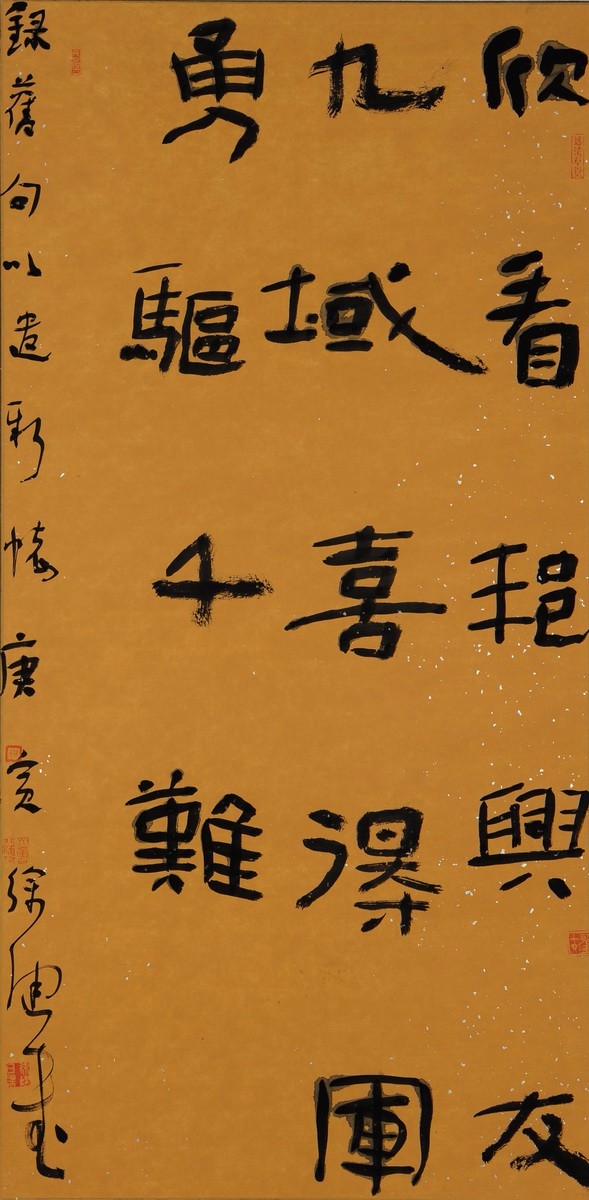 欣看邦興友
九域喜得軍
勇驅千難
錄舊句以遣新懷庚寅徐書